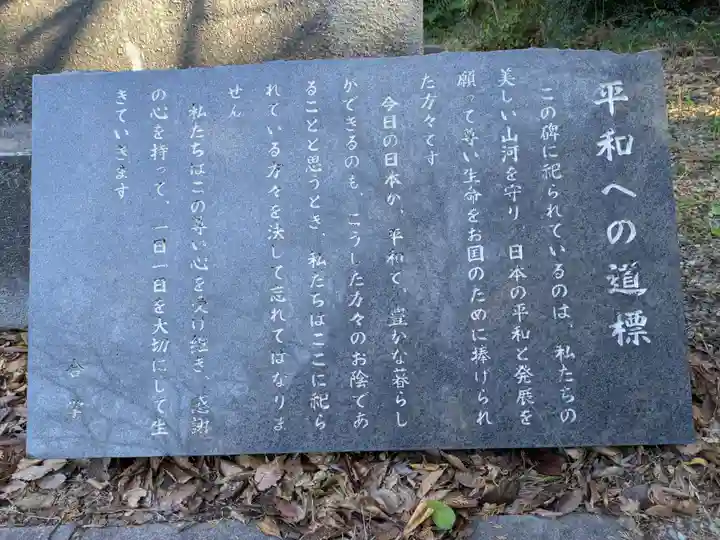 平和への道標
この碑に祀られているのは、私たちの
美しい山河を守り、日本の平和と発展を
願って尊い生命をお国のために捧げられ
た方々です
今日の日本が、平和で、豊かな暮らし
ができるのも、こうした方々のお陰であ
ることと思うとき、私たちはここに祀ら
れている方々を決して忘れてはなりま
せん
私たちはこの尊い心を受け継ぎ、感謝
の心を持って、一日一日を大切にして生
きていきます
合掌